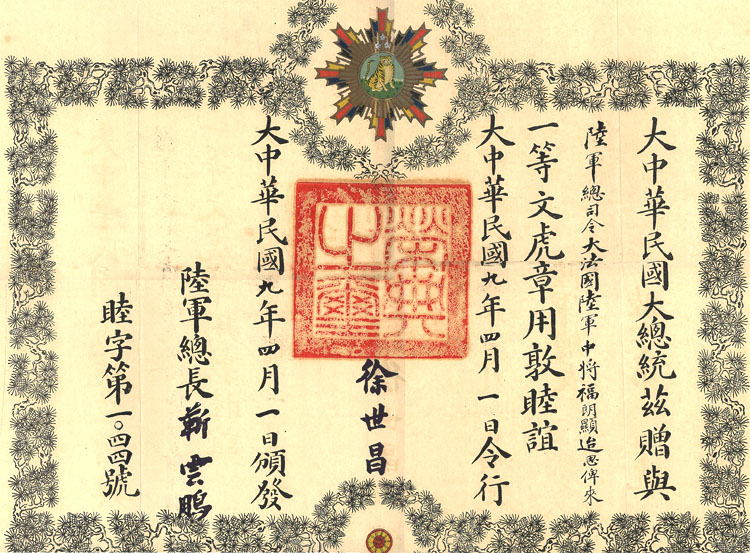 大中華民國大總統茲贈與
陸軍總司令大法國陸軍中將福朗顯迨思俾來
一等文虎章用敦睦誼
大中華民國九年四月一日令行
榮典之璽
徐世昌
大中華民國九年四月一日頒發
陸軍總長靳雲鵬
睦字第一〇四四號